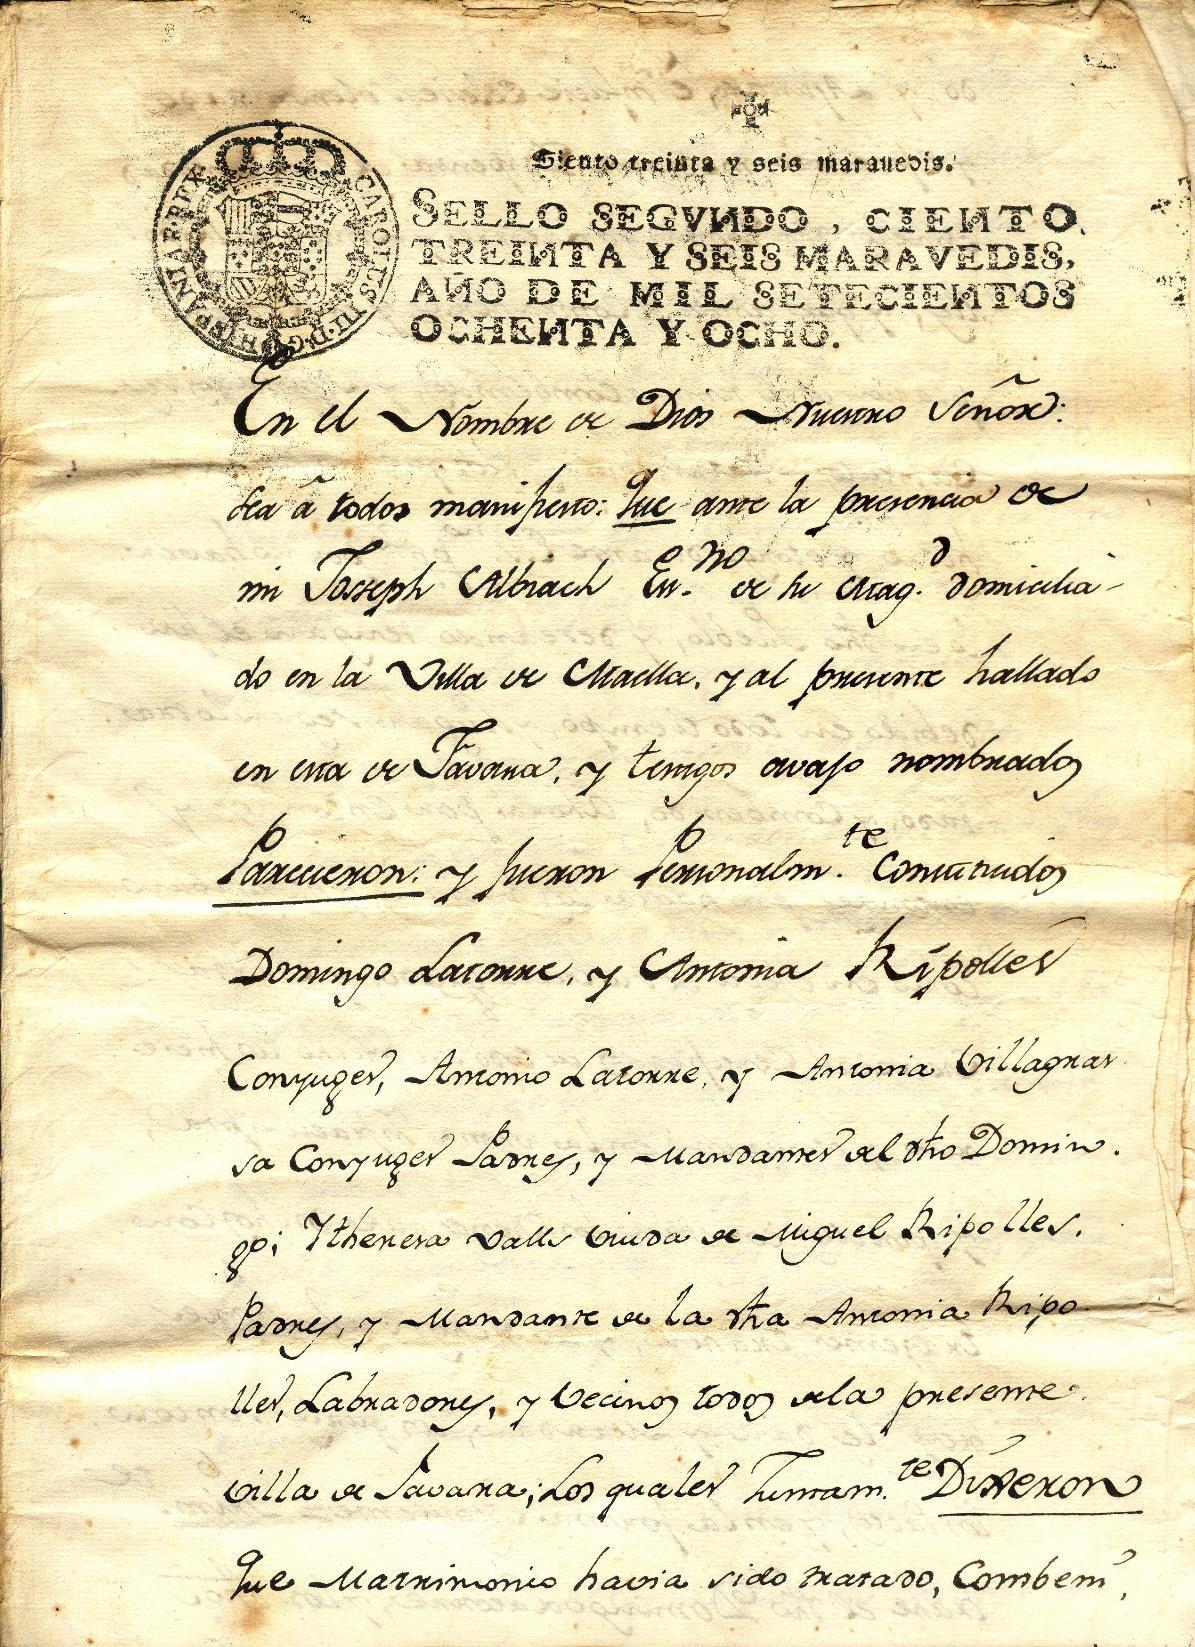 Siento treinta y seis marauedis.
SELLO SEGVNDO, CIENTO
TREINTA Y SEIS MARAVEDIS,
AÑO DE MIL SETECIENTOS
OCHENTA Y OCHO.
CAROLUS III D G HISPANIAR REX
En el Nombre de Dios Nuestro Señor:
sea â todos manifiesto: que ante la presencia de
mi Joseph Albiach Es.no de su Mag.d domicilia-
do en la Villa de Maella, y al presente hallado
en esta de Favara, y testigos avajo nombrados
Parecieron: y fueron Personalm.te Constituidos
Domingo Latorre, y Antonia Ripolles
Conyuges, Antonio Latorre, y Antonia Villagras
sa Conyuges Padres, y Mandantes del dho Domin.
go; Y theresa Valls Viuda de Miguel Ripolles,
Padres, y Mandante de la dha Antonia Ripo
lles, Labradores, y Vecinos todos dela presente
Villa de Favara; Los quales Juntam.te Dixeron
Que Matrimonio havia sido tratado, Combem,